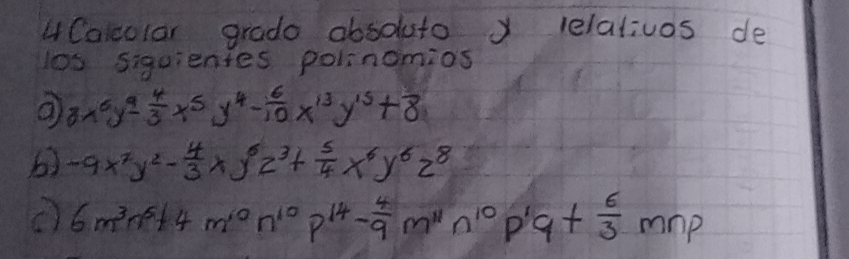 4 Calcolar grado absoluto y relativos de
los siguientes polinomios
a) 8x⁶y⁹ - 4/3 x⁵ y⁴ - 6/10 x¹³ y¹⁵ + 8
b) -9x⁷y² - 4/3 x y⁶ z³ + 5/4 x⁶ y⁶ z⁸
c) 6m³n⁶ + 4 m¹⁰ n¹⁰ p¹⁴ - 4/9 m¹¹ n¹⁰ p¹q + 6/3 mnp